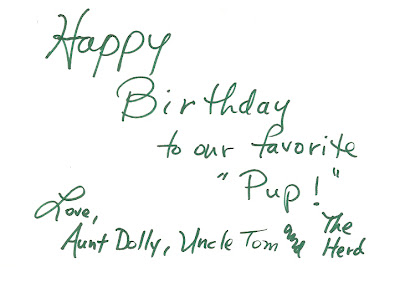 Happy
Birthday
to our favorite
"Pup!"
Love,
Aunt Dolly, Uncle Tom and The Herd